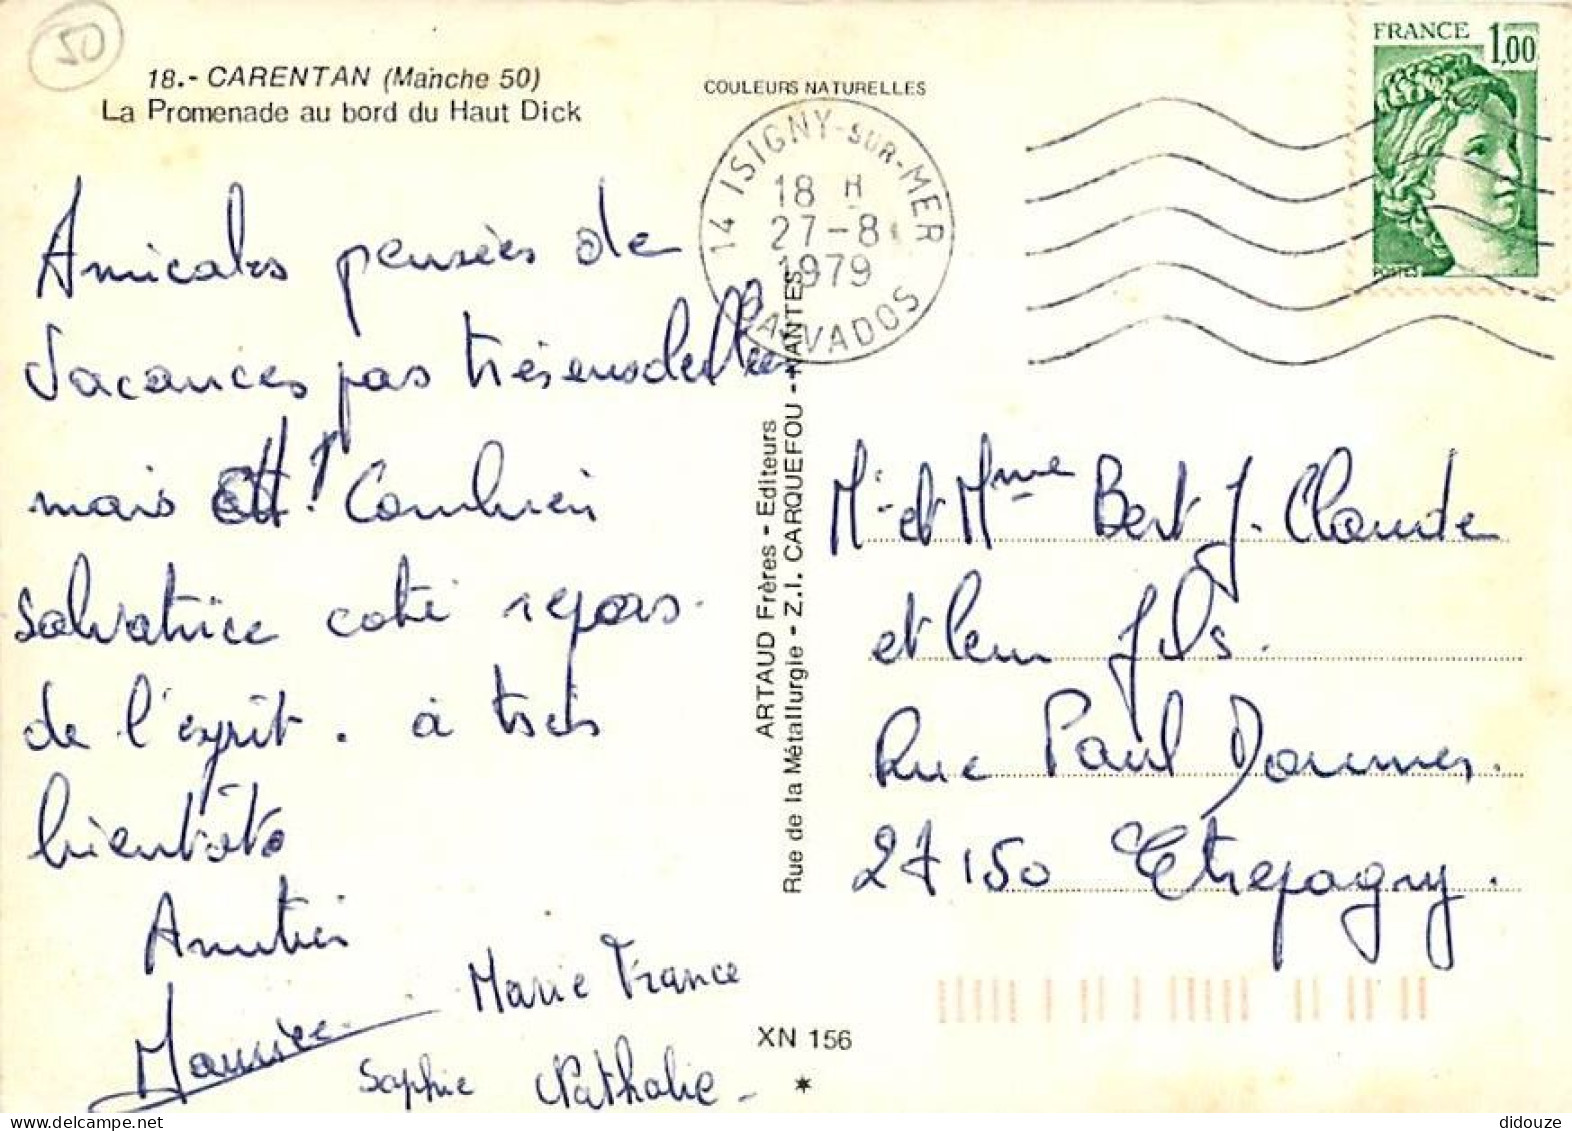 50
18.- CARENTAN (Manche 50)
La Promenade au bord du Haut Dick
COULEURS NATURELLES
14 ISIGNY-SUR-MER
18 H
27-8
1979
CALVADOS
FRANCE 1,00
POSTES
Amicales pensées de
Vacances pas très ensoleillées
mais Combien
Salvatrice coté repos
de l'esprit. à très
bientôt
Amitiés
Maurice Marie France
Sophie Nathalie
ARTAUD Frères - Editeurs
Rue de la Métallurgie - Z.I. CARQUEFOU - NANTES
Mr et Mme Bert J. Claude
et leur fils.
Rue Paul Doumer.
27150 Etrepagny.
XN 156
didouze